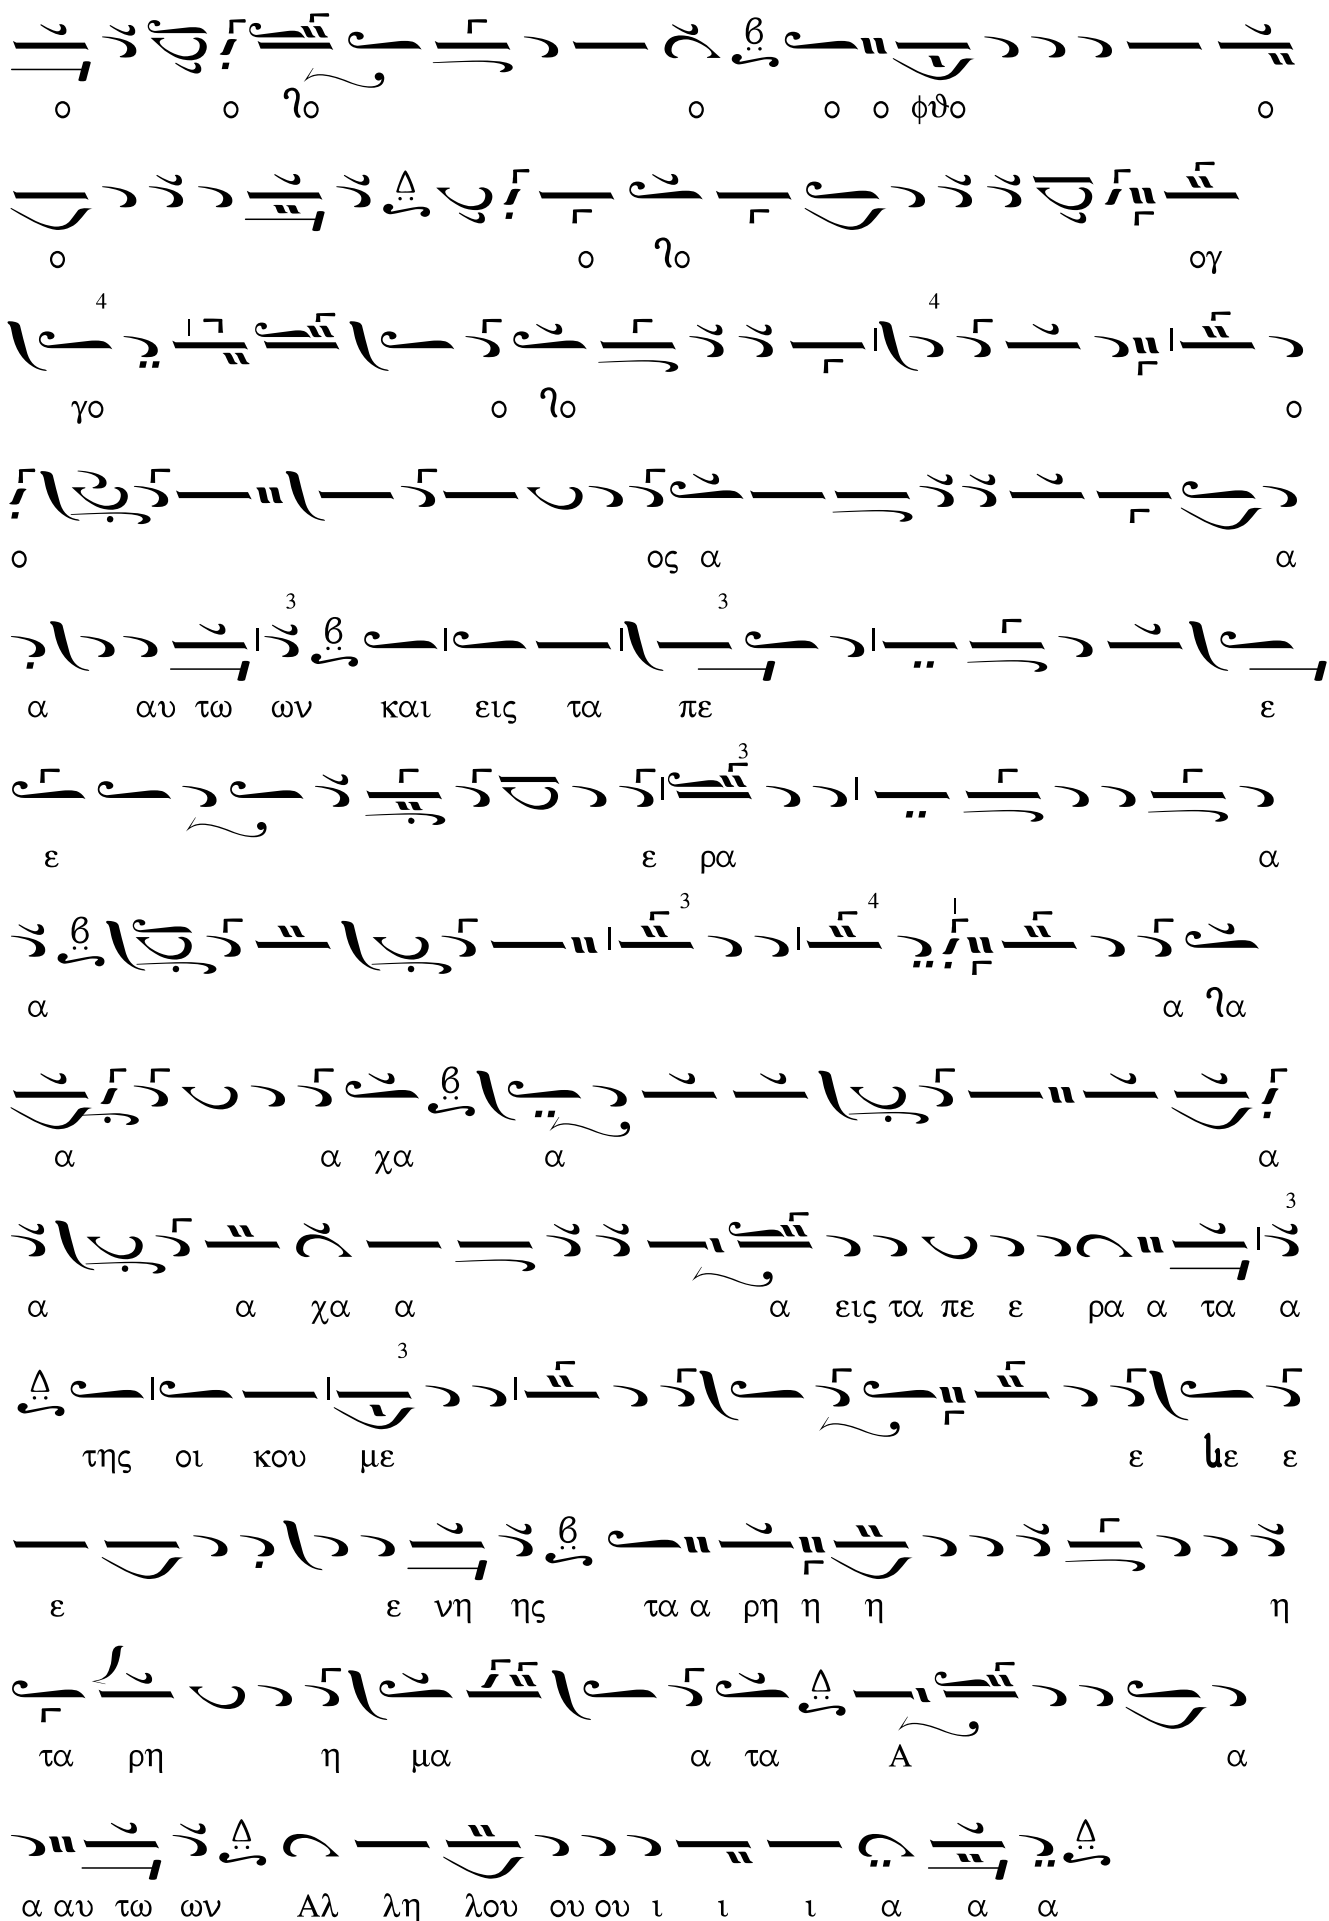 ο ο λο ο ο ο φθο ο
ο ο λο ογ
4 4
γο ο λο ο
ο ος α α
3 3
α αυ τω ων και εις τα πε ε
3
ε ε ρα α
3 4
α α λα
α α χα α α
3
α α χα α α εις τα πε ε ρα α τα α
3
της οι κου με ε με ε
ε ε νη ης τα α ρη η η η
τα ρη η μα α τα Α α
α αυ τω ων Αλ λη λου ου ου ι ι ι α α α